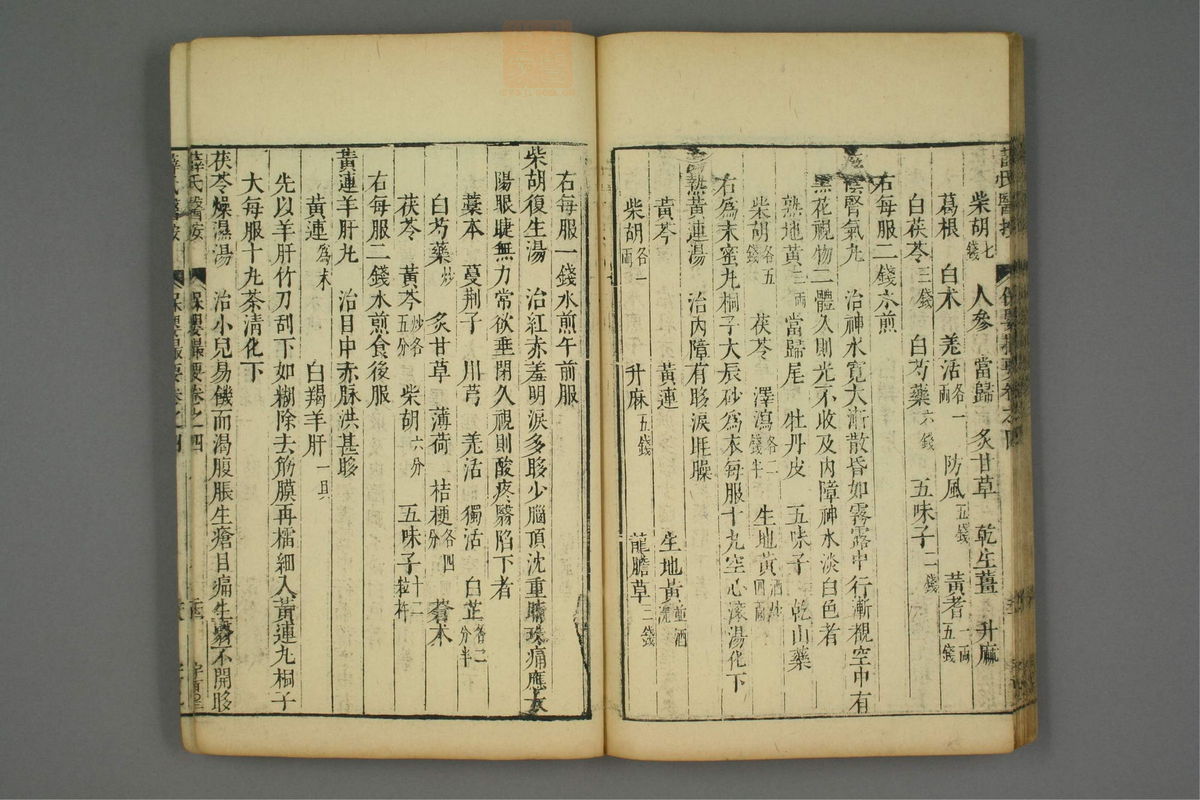 柴胡七錢 人參 當歸 炙甘草 乾生薑 升麻
葛根 白朮 羗活各一兩 防風五錢 黃耆一兩五錢
白茯苓三錢 白芍藥六錢 五味子二錢
右每服二錢水煎
腎氣丸 治神水寬大漸散昏如霧露中行漸覩空中有
黑花視物二體久則光不收及內障神水淡白色者
熟地黃二兩 當歸尾 牡丹皮 五味子 乾山藥
柴胡各五錢 茯苓 澤瀉各二錢半 生地黃酒炒四兩
右爲末蜜丸桐子大辰砂爲衣每服十丸空心滚湯化下
熟黃連湯 治內障有眵淚眶臊
黃芩 黃連 生地黃並酒洗
柴胡各一兩 升麻五錢 龍膽草三錢
右每服一錢水煎午前服
柴胡復生湯 治紅赤羞明淚多眵少腦頂沈重睛珠痛應太
陽眼睫無力常欲垂閉久視則酸疼翳陷下者
藁本 蔓荆子 川芎 羗活 獨活 白芷各二分半
白芍藥炒 炙甘草 薄荷 桔梗各四分 蒼朮
茯苓 黃芩炒各五分 柴胡六分 五味子十二粒杵
右每服二錢水煎食後服
黃連羊肝丸 治目中赤脉洪甚眵
黃連爲末 白羯羊肝一具
先以羊肝竹刀刮下如糊除去筋膜再擂細入黃連丸桐子
大每服十丸茶清化下
茯苓燥濕湯 治小兒易饑而渴腹脹生瘡目痛生翳不開眵
薛氏醫按 保嬰撮要卷之四